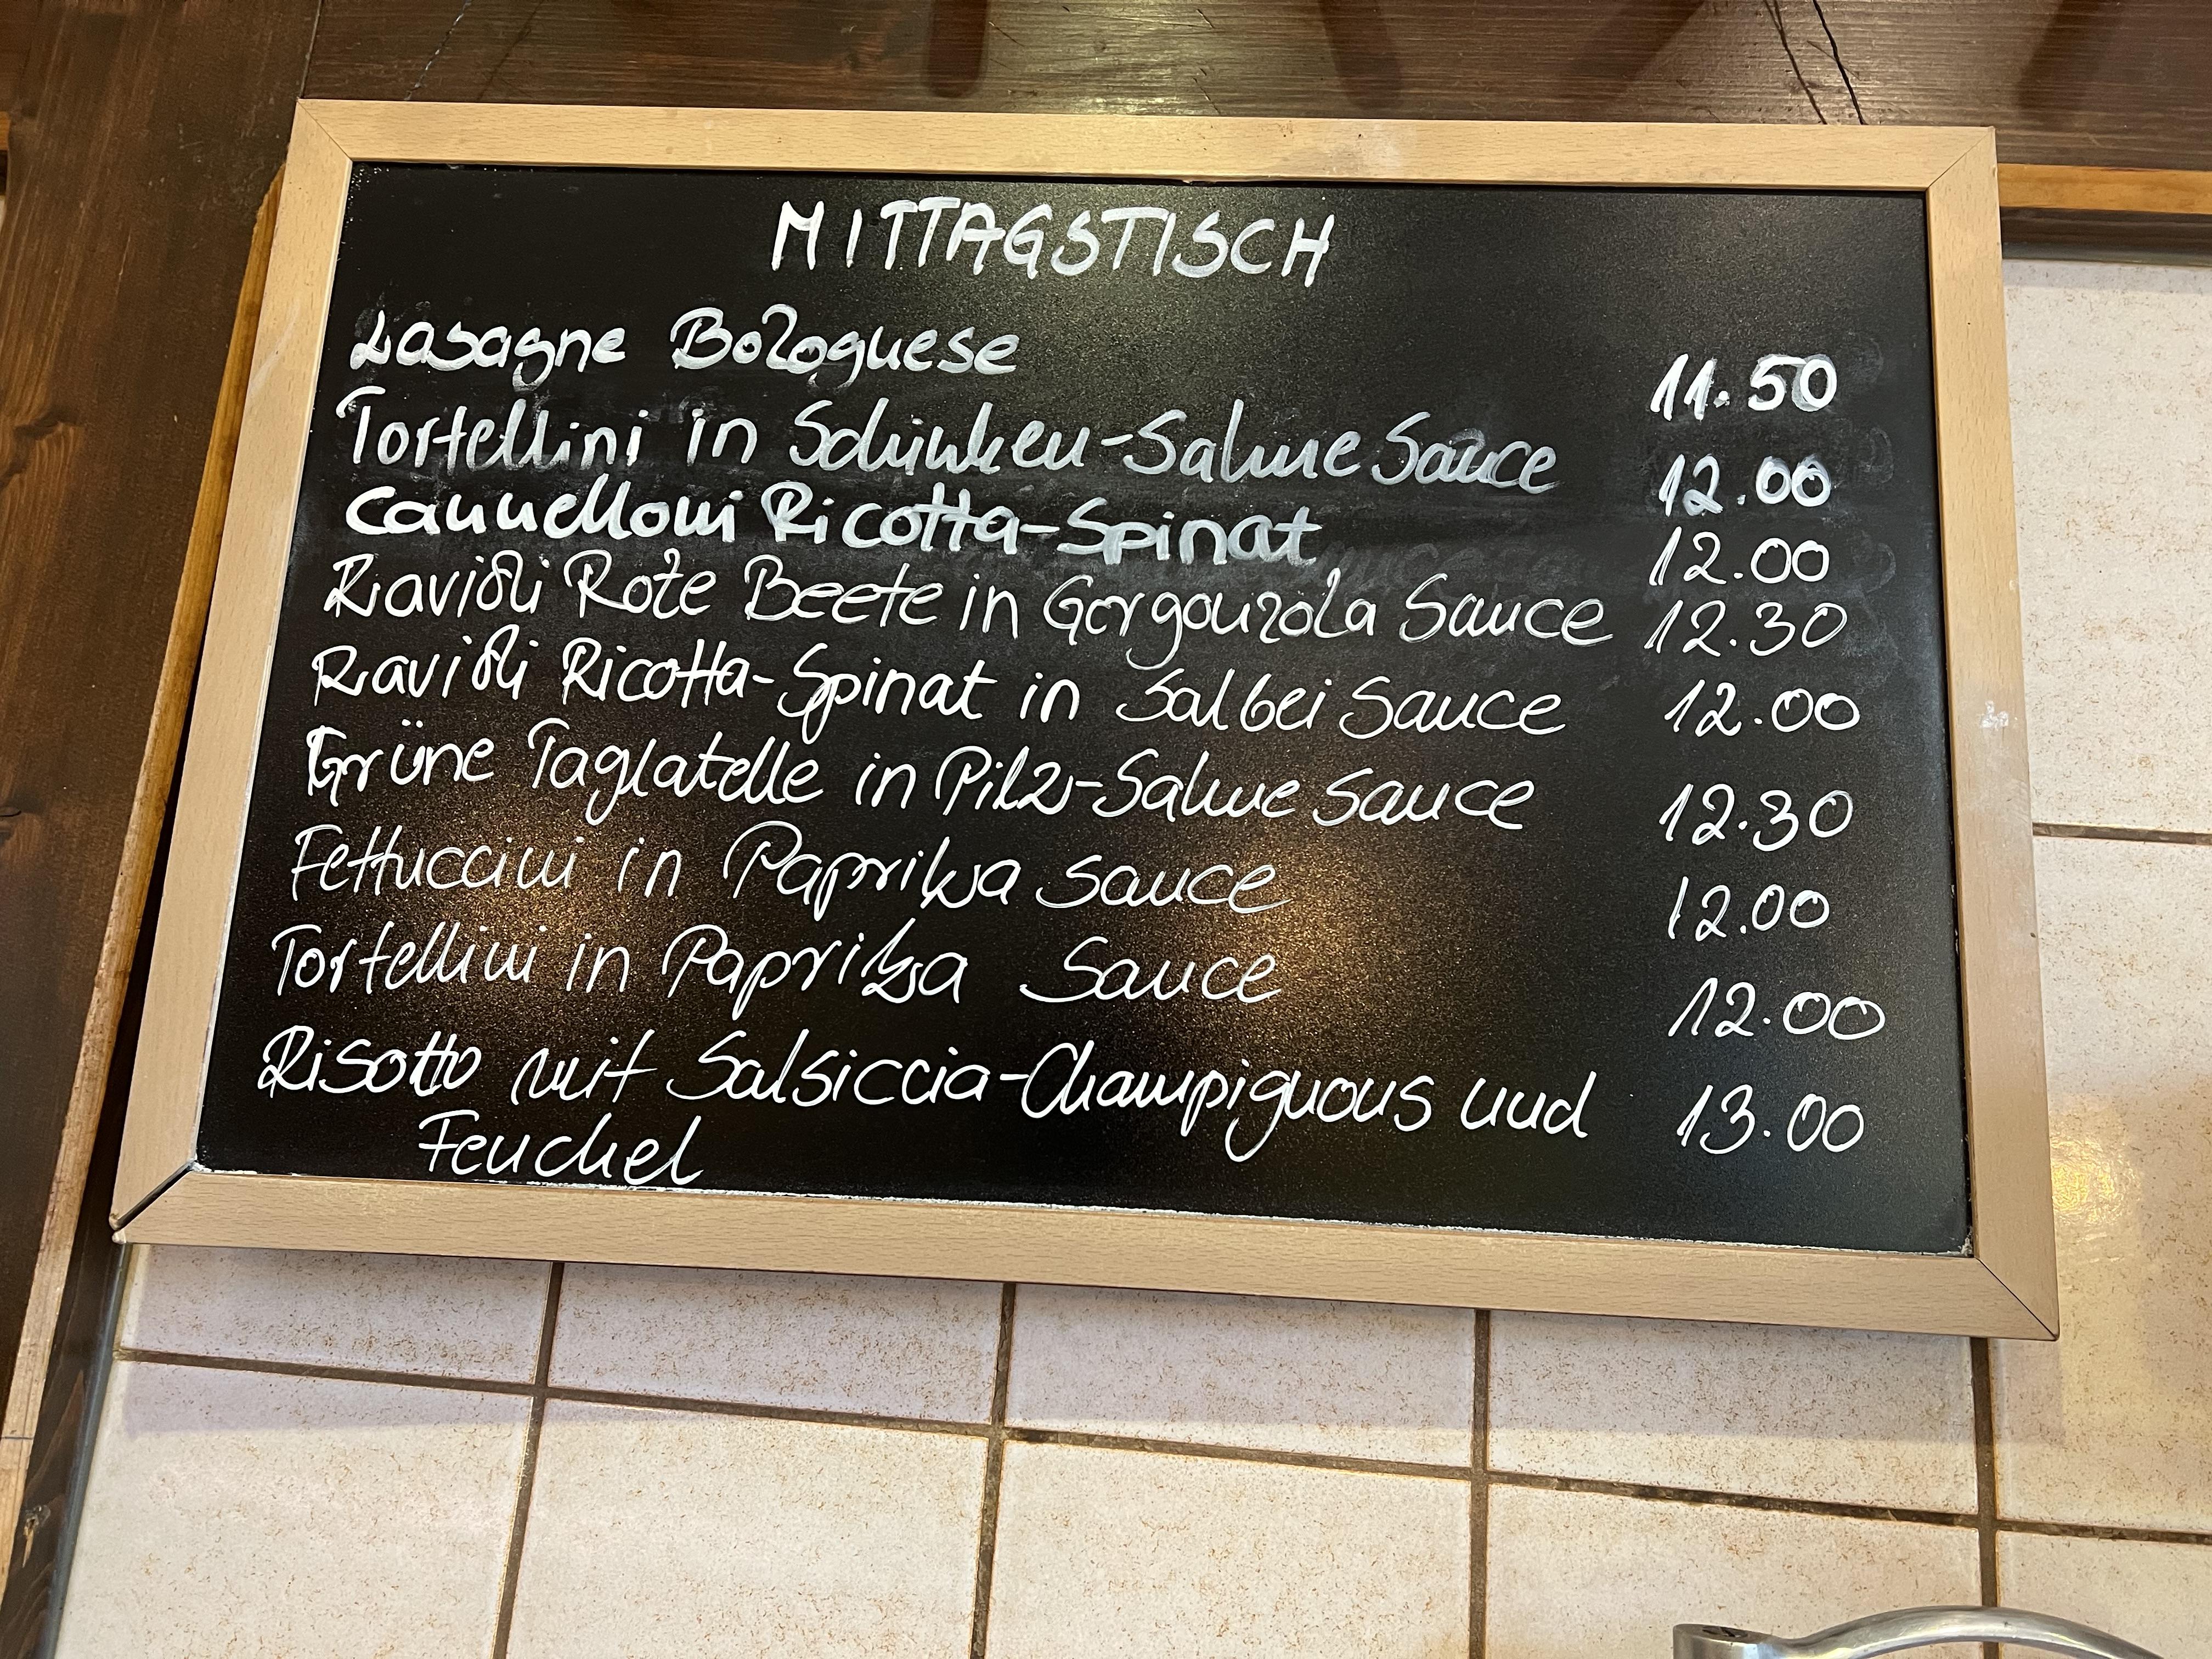 MITTAGSTISCH
Lasagne Bolognese 11.50
Tortellini in Schinken-Sahne Sauce 12.00
Cannelloni Ricotta-Spinat 12.00
Ravioli Rote Beete in Gorgonzola Sauce 12.30
Ravioli Ricotta-Spinat in Salbei Sauce 12.00
Grüne Taglatelle in Pilz-Sahne Sauce 12.30
Fettuccini in Paprika Sauce 12.00
Tortellini in Paprika Sauce 12.00
Risotto mit Salsiccia-Champignons und 13.00
Fenchel